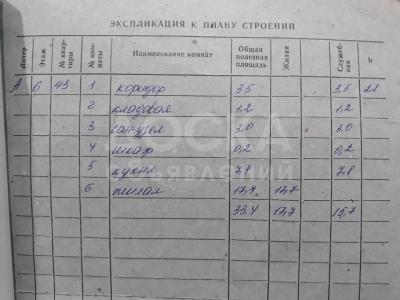 ЭКСПЛИКАЦИЯ К ПЛАНУ СТРОЕНИЙ
Литер Этаж № квартиры № комнаты Наименование комнат Общая полезная площадь Жилая Служебная h
А 6 43 1 коридор 3,5 3,5 2.8
2 кладовая 1,2 1,2
3 сан.узел 3.0 3.0
4 шкаф 0,2 0,2
5 кухня 7,8 7,8
6. жилая 17,7 17,7
33.4 17,7 15,7
ДОСКА
ОБЪЯВЛЕНИЙ